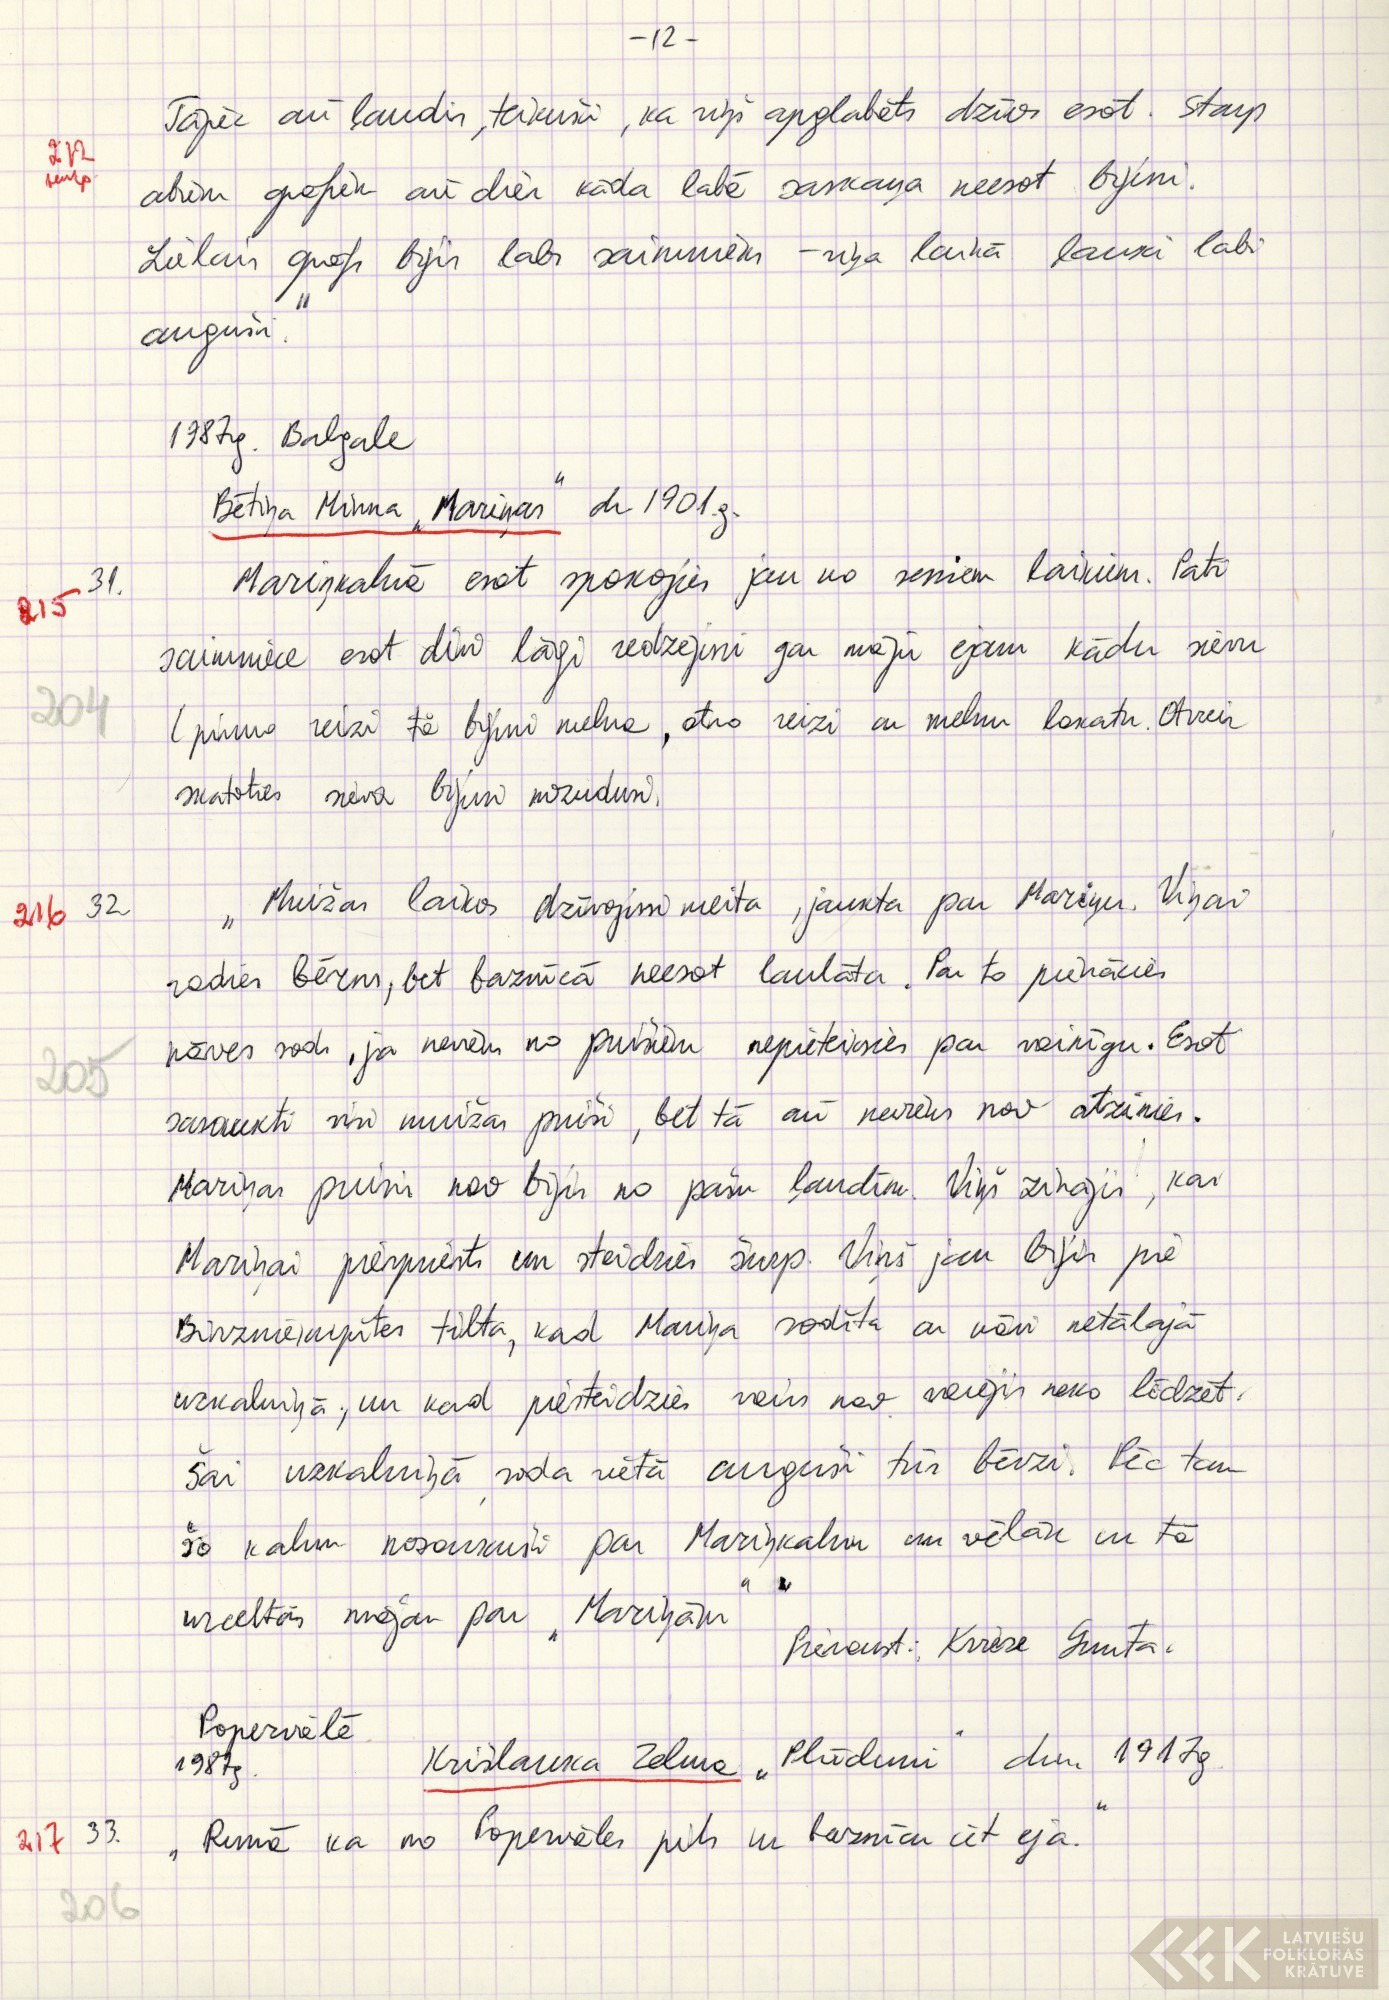 -12-
Tāpēc arī ļaudis, teikuši, ka viņš apglabāts dzīvs esot. Starp
212
turp.
abiem grofiem arī diez kāda labā saskaņa neesot bijusi.
Lielais grofs bijis labs saimnieks - viņa laikā lauki labi
auguši."
1987g. Balgale
Bētiņa Minna „Mariņas" dz 1901.g.
215 31. Mariņkalnā esot spokojies jau no seniem laikiem. Pati
saimniece esot divi lāgi redzējusi gar māju ejam kādu sievu
204
(pirmo reizi tā bijusi melna, otro reizi ar melnu lakatu. Otrreiz
skatoties sieva bijusi nozudusi.
216 32 „Muižas laikos dzīvojusi meita, jaukta par Mariņu. Viņai
radies bērns, bet baznīcā neesot laulāta. Par to pienācies
nāves sods, ja neviens no puišiem nepieteiksies par vainīgu. Esot
205
sasaukti visi muižas puiši, bet tā arī neviens nav atzinies.
Mariņas puisis nav bijis no pašu ļaudīm. Viņš zinājis, kas
Mariņai piespriests un steidzies šurp. Viņš jau bijis pie
tilta, kad Mariņa sodīta ar nāvi netālajā
uzkalniņā, un kad piesteidzies vairs nav varējis neko līdzēt.
Šai uzkalniņā, soda vietā auguši trīs bērzi. Pēc tam
šo kalnu nosaukuši par Mariņkalnu un vēlāk ur tā
uzceltās mājas par „Mariņām"
Pierakst.: Krieze Gunta.
Popervālē
1987g. Krišlauka Zelma „Plūdumi" dzim 1917g
217 33. „Runā ka no Popervāles pils uz baznīcu iet eja."
206
LATVIEŠU
FOLKLORAS
KRĀTUVE